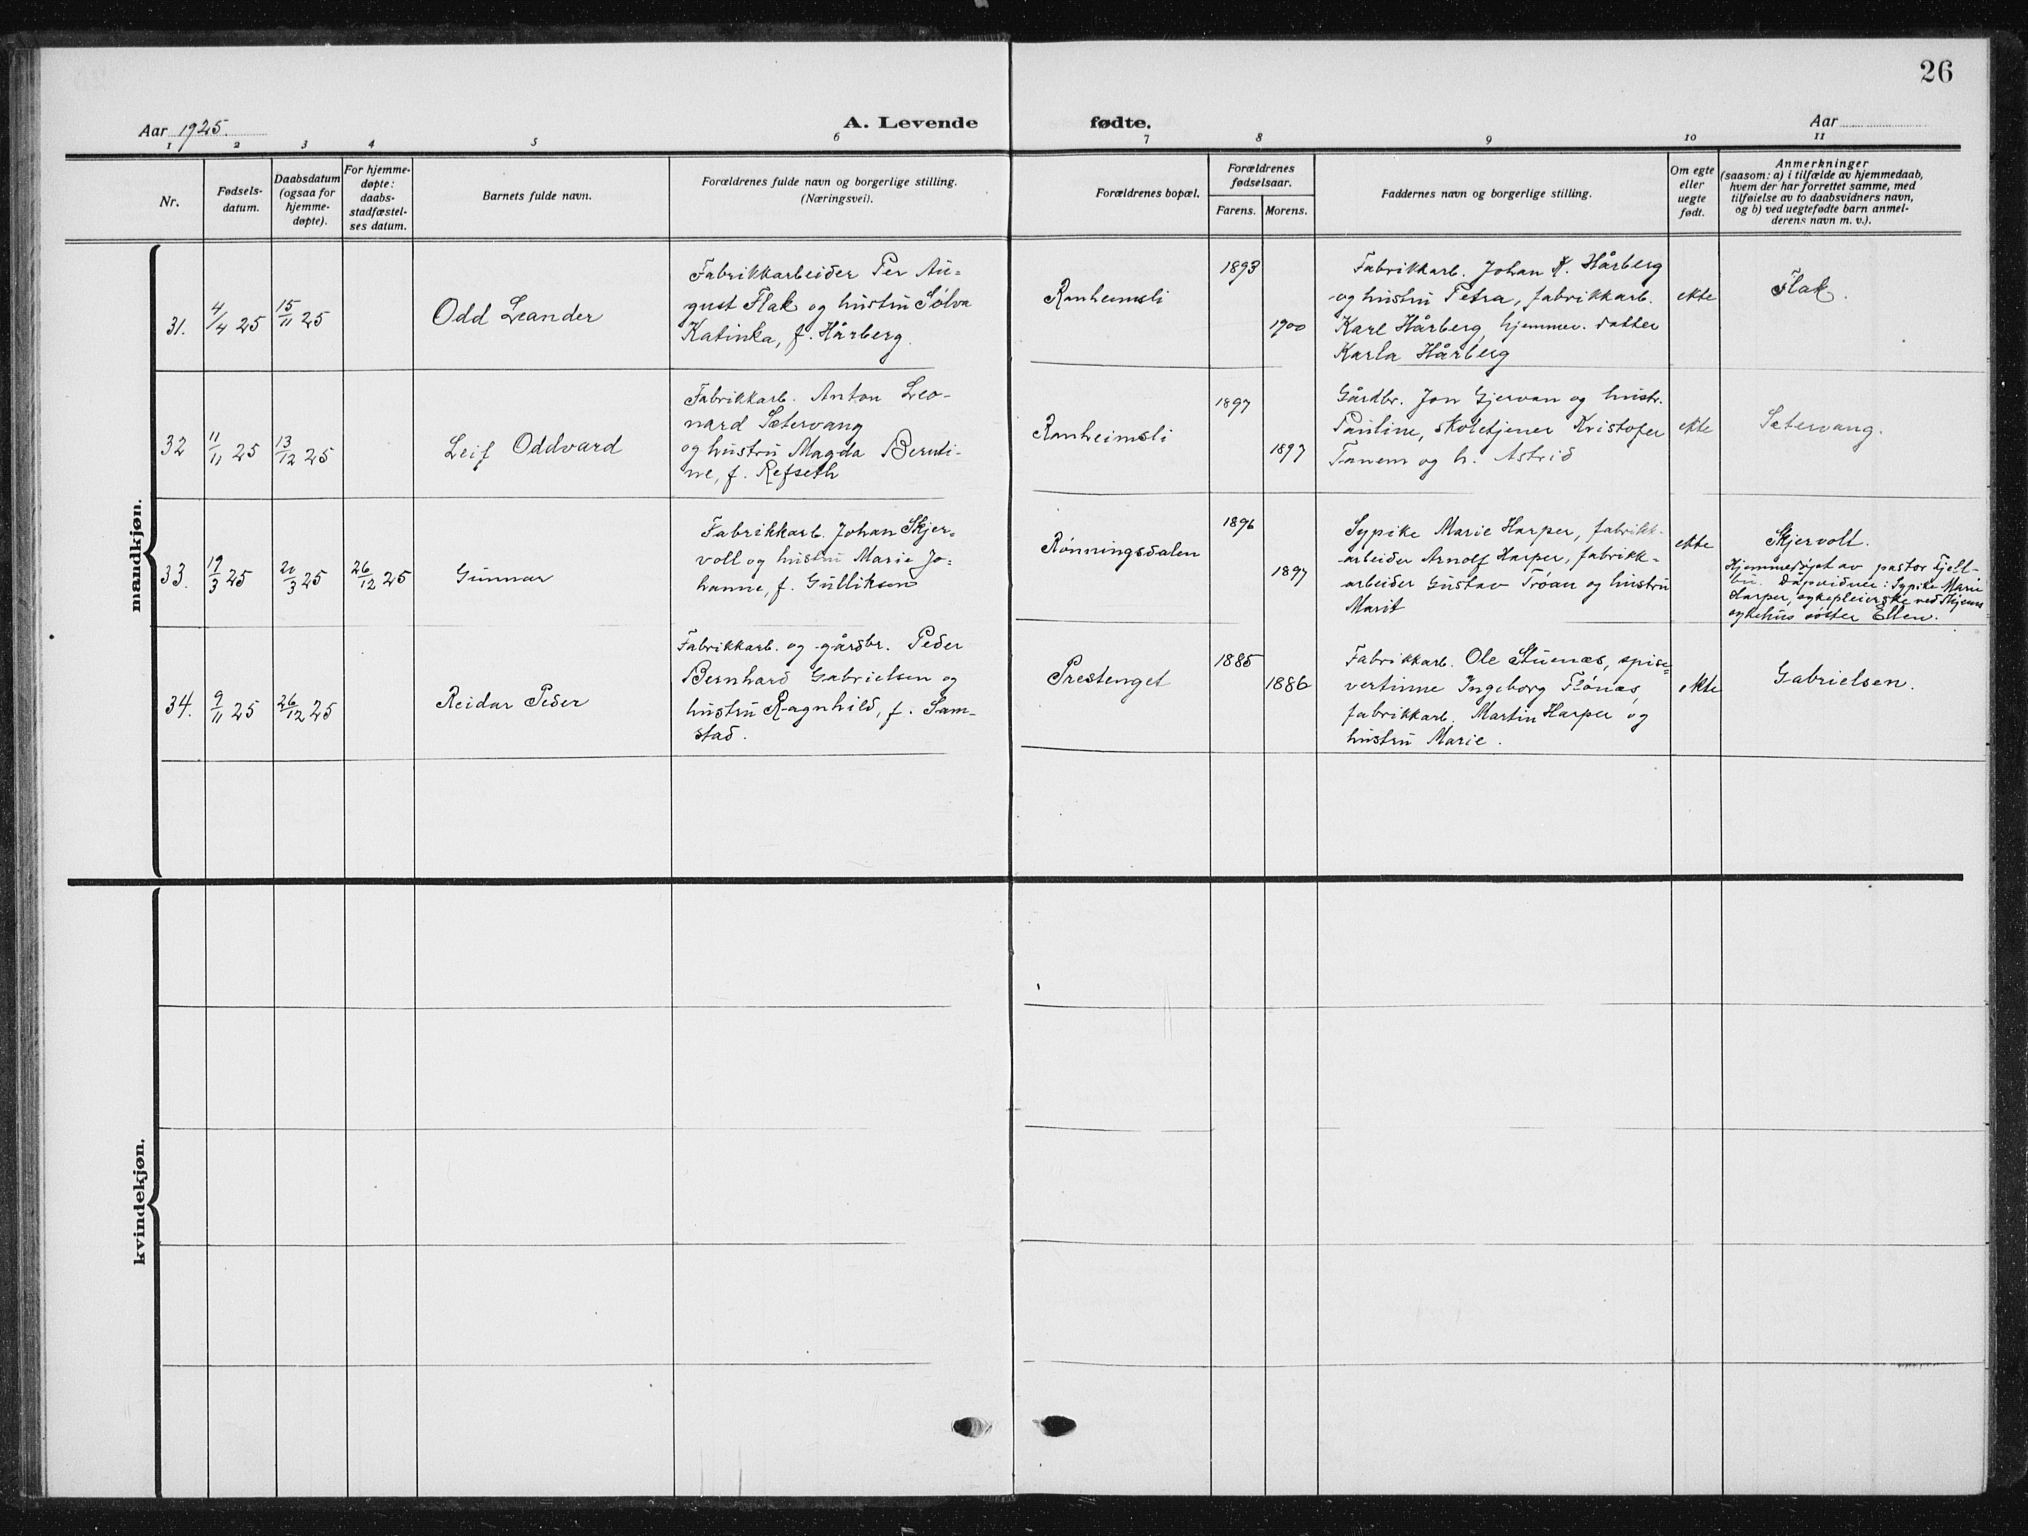 26
Aar 1925.
A. Levende fødte.
Aar
1 2 3 4 5 6 7 8 9 10 11
Nr.
Fødsels-
datum.
Daabsdatum
(ogsaa for
hjemme-
døpte).
For hjemme-
døpte:
daabs-
stadfæstel-
ses datum.
Barnets fulde navn.
Forældrenes fulde navn og borgerlige stilling.
(Næringsvei).
Forældrenes bopæl.
Forældrenes
fødselsaar.
Farens. Morens.
Faddernes navn og borgerlige stilling.
Om egte
eller
uegte
født.
Anmerkninger
(saasom: a) i tilfælde av hjemmedaab,
hvem der har forrettet samme, med
tilføielse av to daabsvidners navn,
og b) ved uegtefødte barn anmel-
derens navn m. v.).
mandkjøn.
31.
4/4 25
15/11 25
Odd Leander
Fabrikkarbeider Per Au-
gust Flak og hustru Sølva
Katinka, f. Hårberg.
Ranheimsli
1893
1900
Fabrikkarb. Johan K. Hårberg
og hustru Petra, fabrikkarb.
Karl Hårberg, hjemmev. datter
Karla Hårberg
ekte
Flak.
32
11/11 25
13/12 25
Leif Oddvard
Fabrikkarb. Anton Leo-
nard Setervang
og hustru Magda Bernti-
ne, f. Refseth
Ranheimsli
1897
1897
Gårdbr. Jon Gjervan og hustr.
Pauline, skoletjener Kristofer
Tanem og h. Astrid
ekte
Setervang.
33.
19/3 25
20/3 25
26/12 25
Gunnar
Fabrikkarb. Johan Skjer-
voll og hustru Marie Jo-
hanne, f. Gulliksen
Rønningsdalen
1896
1897
Sypike Marie Harper, fabrikk-
arbeider Arnolf Harper, fabrikk-
arbeider Gustav Trøan og hustru
Marit
ekte
Skjervoll.
Hjemmedøpt av pastor Fjell-
bu. Dåpsvidner: Sypike Marie
Harper, sykepleierske ved
sykehus søster Ellen.
34.
9/11 25
26/12 25
Reidar Peder
Fabrikkarb. og gårdbr. Peder
Bernhard Gabrielsen og
hustru Ragnhild, f. Sam-
stad.
Prestenget
1885
1886
Fabrikkarb. Ole Stuenæs, spise-
vertinne Ingeborg Flønæs,
fabrikkarb. Martin Harper og
hustru Marie.
ekte
Gabrielsen.
kvindekjøn.